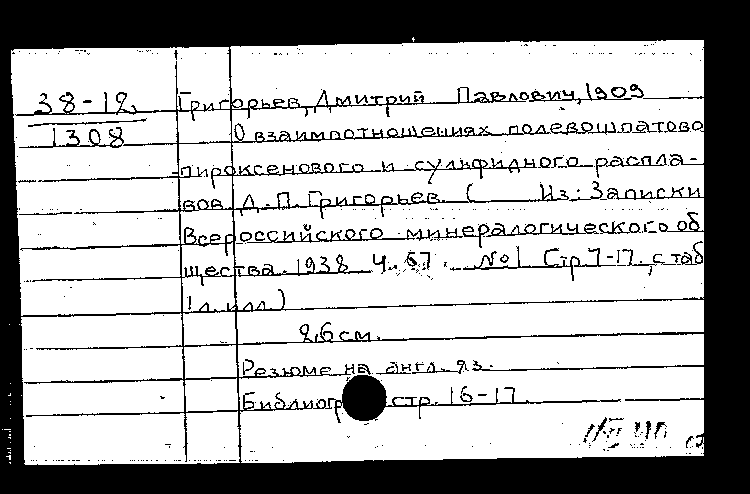 38-12 Григорьев, Дмитрий Павлович, 1909
1308 О взаимоотношениях полевошпатово
-пироксенового и сульфидного распла-
вов. Д. П. Григорьев. ( Из: Записки
Всероссийского минералогического об
щества. 1938 Ч. 67. №1 Стр. 7-17., с таб
1 л. илл.)
26 см.
Резюме на англ. яз.
Библиогр стр. 16-17.